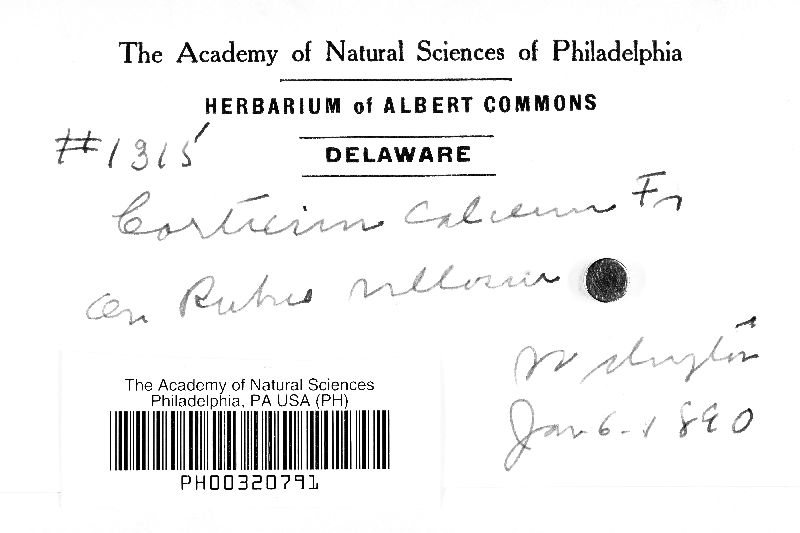 The Academy of Natural Sciences of Philadelphia
HERBARIUM of ALBERT COMMONS
#1315
DELAWARE
Corticium calceum Fr
on Rubus villosus
Wilmington
Jan 6-1890
The Academy of Natural Sciences
Philadelphia, PA USA (PH)
PH00320791